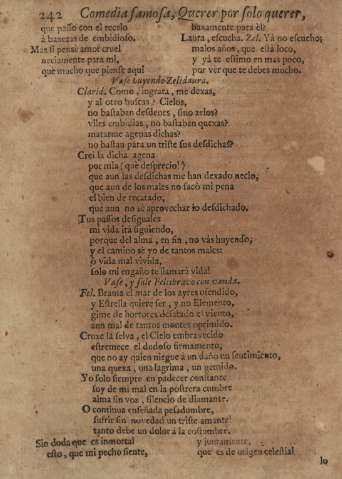 242 Comedia famosa, Querer por solo querer,
que passo con el recelo
à baxezas de embidioso.
Mas si pensè amor cruel
neciamente para mi,
què mucho que piense aqui
baxamente para èl?
Laura, escucha. Zel. Yà no escucho;
malos años, que està loco,
y yà te estimo en mas poco,
por ver que te debes mucho.
Vase huyendo Zelidaura.
Clarid. Como, ingrata, me dexas,
y al otro buscas? Cielos,
no bastaban desdenes, sino zelos?
viles embidias, no bastaban quexas?
matarme agenas dichas?
no bastan para un triste sus desdichas?
Crei la dicha agena
por mia (què desprecio!)
que aun las desdichas me han dexado necio,
que aun de los males no sacò mi pena
el bien de recatado,
que aun no se aprovechar lo desdichado.
Tus passos desiguales
mi vida irà siguiendo,
porque del alma, en fin, no vàs huyendo,
y el camino sè yo de tantos males:
ò vida mal vivida,
solo mi engaño te llamarà vida!
Vase, y sale Felisbravo con vanda.
Fel. Brama el mar de los ayres ofendido,
y Estrella quiere ser, y no Elemento,
gime de horrores desatado el viento,
aun mal de tantos montes oprimido.
Cruxe la selva, el Cielo embravecido
estremece el dudoso firmamento,
que no ay quien niegue à un daño un sentimiento,
una quexa, una lagrima, un gemido.
Yo solo siempre en padecer constante
soy de mi mal en la postrera cumbre
alma sin voz, silencio de diamante.
O continua enseñada pesadumbre,
sufrir sin novedad un triste amante!
tanto debe un dolor à la costumbre.
Sin duda que es inmortal
esto, que mi pecho siente,
y juntamente,
que es de origen celestial
lo